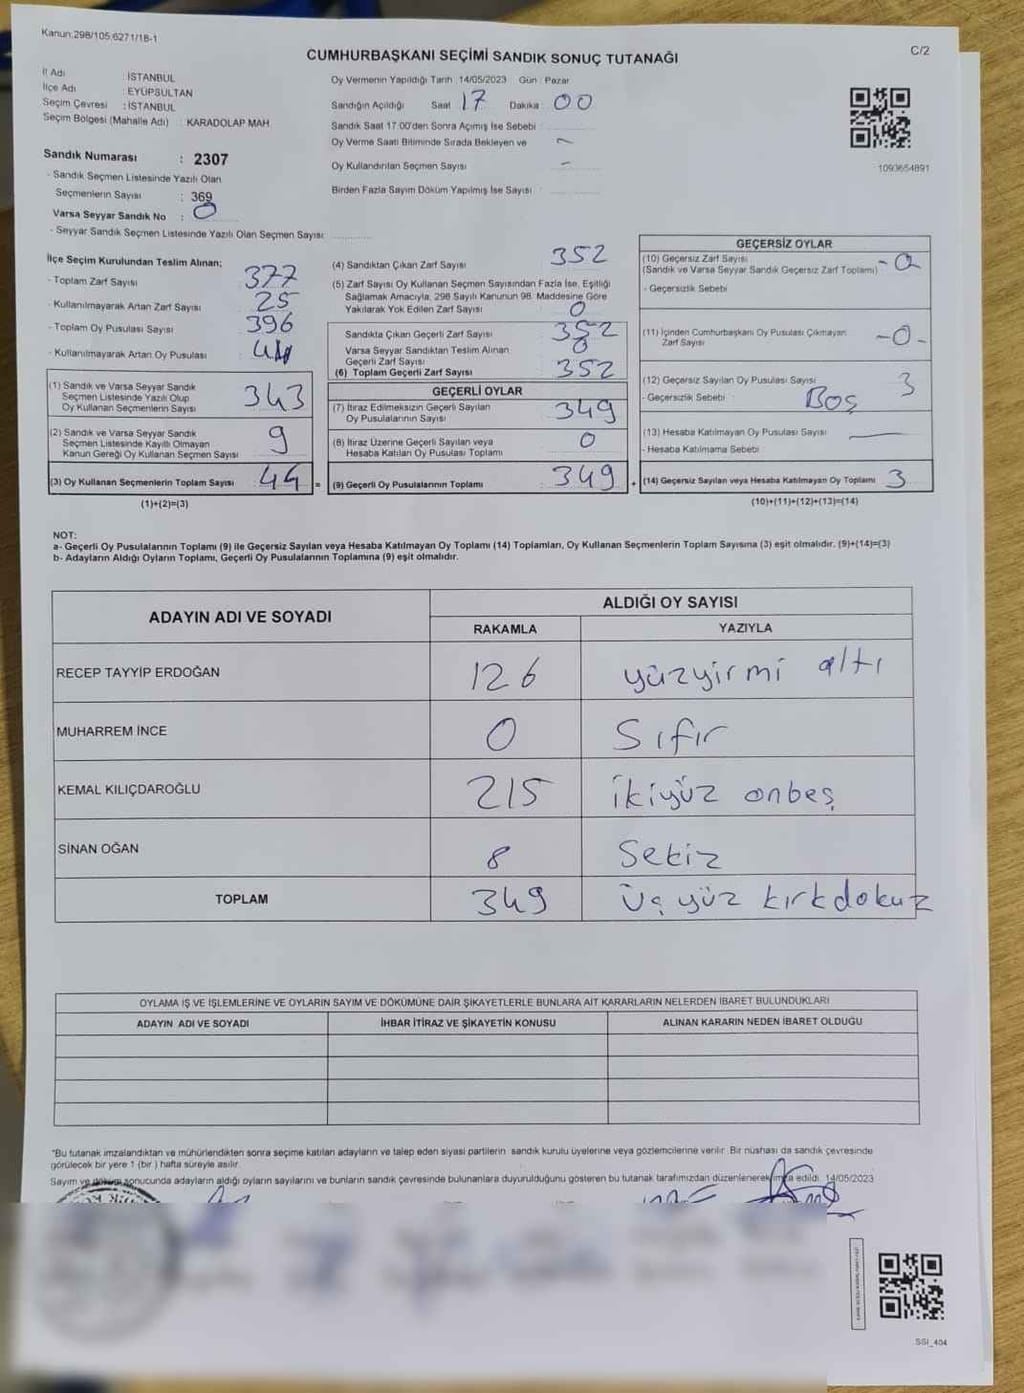 Kanun:298/105,6271/18-1
C/2
CUMHURBAŞKANI SEÇİMİ SANDIK SONUÇ TUTANAĞI
İl Adı : İSTANBUL
İlçe Adı : EYÜPSULTAN
Seçim Çevresi : İSTANBUL
Seçim Bölgesi (Mahalle Adı) : KARADOLAP MAH
Sandık Numarası : 2307
- Sandık Seçmen Listesinde Yazılı Olan
Seçmenlerin Sayısı : 369
Varsa Seyyar Sandık No : 0
- Seyyar Sandık Seçmen Listesinde Yazılı Olan Seçmen Sayısı:
Oy Vermenin Yapıldığı Tarih :14/05/2023 Gün : Pazar
Sandığın Açıldığı Saat 17 Dakika : 00
Sandık Saat 17:00'den Sonra Açılmış İse Sebebi :
Oy Verme Saati Bitiminde Sırada Bekleyen ve
Oy Kullandırılan Seçmen Sayısı : -
Birden Fazla Sayım Döküm Yapılmış İse Sayısı :
1093654891
İlçe Seçim Kurulundan Teslim Alınan;
- Toplam Zarf Sayısı : 377
- Kullanılmayarak Artan Zarf Sayısı : 25
- Toplam Oy Pusulası Sayısı : 396
- Kullanılmayarak Artan Oy Pusulası :
(1) Sandık ve Varsa Seyyar Sandık
Seçmen Listesinde Yazılı Olup
Oy Kullanan Seçmenlerin Sayısı : 343
(2) Sandık ve Varsa Seyyar Sandık
Seçmen Listesinde Kayıtlı Olmayan
Kanun Gereği Oy Kullanan Seçmen Sayısı : 9
(3) Oy Kullanan Seçmenlerin Toplam Sayısı : 44 =
(1)+(2)=(3)
(4) Sandıktan Çıkan Zarf Sayısı : 352
(5) Zarf Sayısı Oy Kullanan Seçmen Sayısından Fazla İse, Eşitliği
Sağlamak Amacıyla, 298 Sayılı Kanunun 98. Maddesine Göre
Yakılarak Yok Edilen Zarf Sayısı : 0
Sandıkta Çıkan Geçerli Zarf Sayısı : 352
Varsa Seyyar Sandıktan Teslim Alınan
Geçerli Zarf Sayısı : 0
(6) Toplam Geçerli Zarf Sayısı : 352
GEÇERLİ OYLAR
(7) İtiraz Edilmeksizin Geçerli Sayılan
Oy Pusulalarının Sayısı : 349
(8) İtiraz Üzerine Geçerli Sayılan veya
Hesaba Katılan Oy Pusulası Toplamı : 0
(9) Geçerli Oy Pusulalarının Toplamı : 349 +
GEÇERSİZ OYLAR
(10) Geçersiz Zarf Sayısı
(Sandık ve Varsa Seyyar Sandık Geçersiz Zarf Toplamı) -0
- Geçersizlik Sebebi
(11) İçinden Cumhurbaşkanı Oy Pusulası Çıkmayan
Zarf Sayısı -0-
(12) Geçersiz Sayılan Oy Pusulası Sayısı 3
- Geçersizlik Sebebi : Boş
(13) Hesaba Katılmayan Oy Pusulası Sayısı —
- Hesaba Katılmama Sebebi
(14) Geçersiz Sayılan veya Hesaba Katılmayan Oy Toplamı 3
(10)+(11)+(12)+(13)=(14)
NOT:
a- Geçerli Oy Pusulalarının Toplamı (9) ile Geçersiz Sayılan veya Hesaba Katılmayan Oy Toplamı (14) Toplamları, Oy Kullanan Seçmenlerin Toplam Sayısına (3) eşit olmalıdır. (9)+(14)=(3)
b- Adayların Aldığı Oyların Toplamı, Geçerli Oy Pusulalarının Toplamına (9) eşit olmalıdır.
ADAYIN ADI VE SOYADI
ALDIĞI OY SAYISI
RAKAMLA YAZIYLA
RECEP TAYYİP ERDOĞAN 126 yüzyirmi altı
MUHARREM İNCE 0 Sıfır
KEMAL KILIÇDAROĞLU 215 ikiyüz onbeş
SİNAN OĞAN 8 Sekiz
TOPLAM 349 Üçyüz kırkdokuz
OYLAMA İŞ VE İŞLEMLERİNE VE OYLARIN SAYIM VE DÖKÜMÜNE DAİR ŞİKAYETLERLE BUNLARA AİT KARARLARIN NELERDEN İBARET BULUNDUKLARI
ADAYIN ADI VE SOYADI İHBAR İTİRAZ VE ŞİKAYETİN KONUSU ALINAN KARARIN NEDEN İBARET OLDUĞU
*Bu tutanak imzalandıktan ve mühürlendikten sonra seçime katılan adayların ve talep eden siyasi partilerin sandık kurulu üyelerine veya gözlemcilerine verilir. Bir nüshası da sandık çevresinde
görülecek bir yere 1 (bir ) hafta süreyle asılır.
Sayım ve döküm sonucunda adayların aldığı oyların sayılarını ve bunların sandık çevresinde bulunanlara duyurulduğunu gösteren bu tutanak tarafımızdan düzenlenerek imza edildi. 14/05/2023
SGI_404